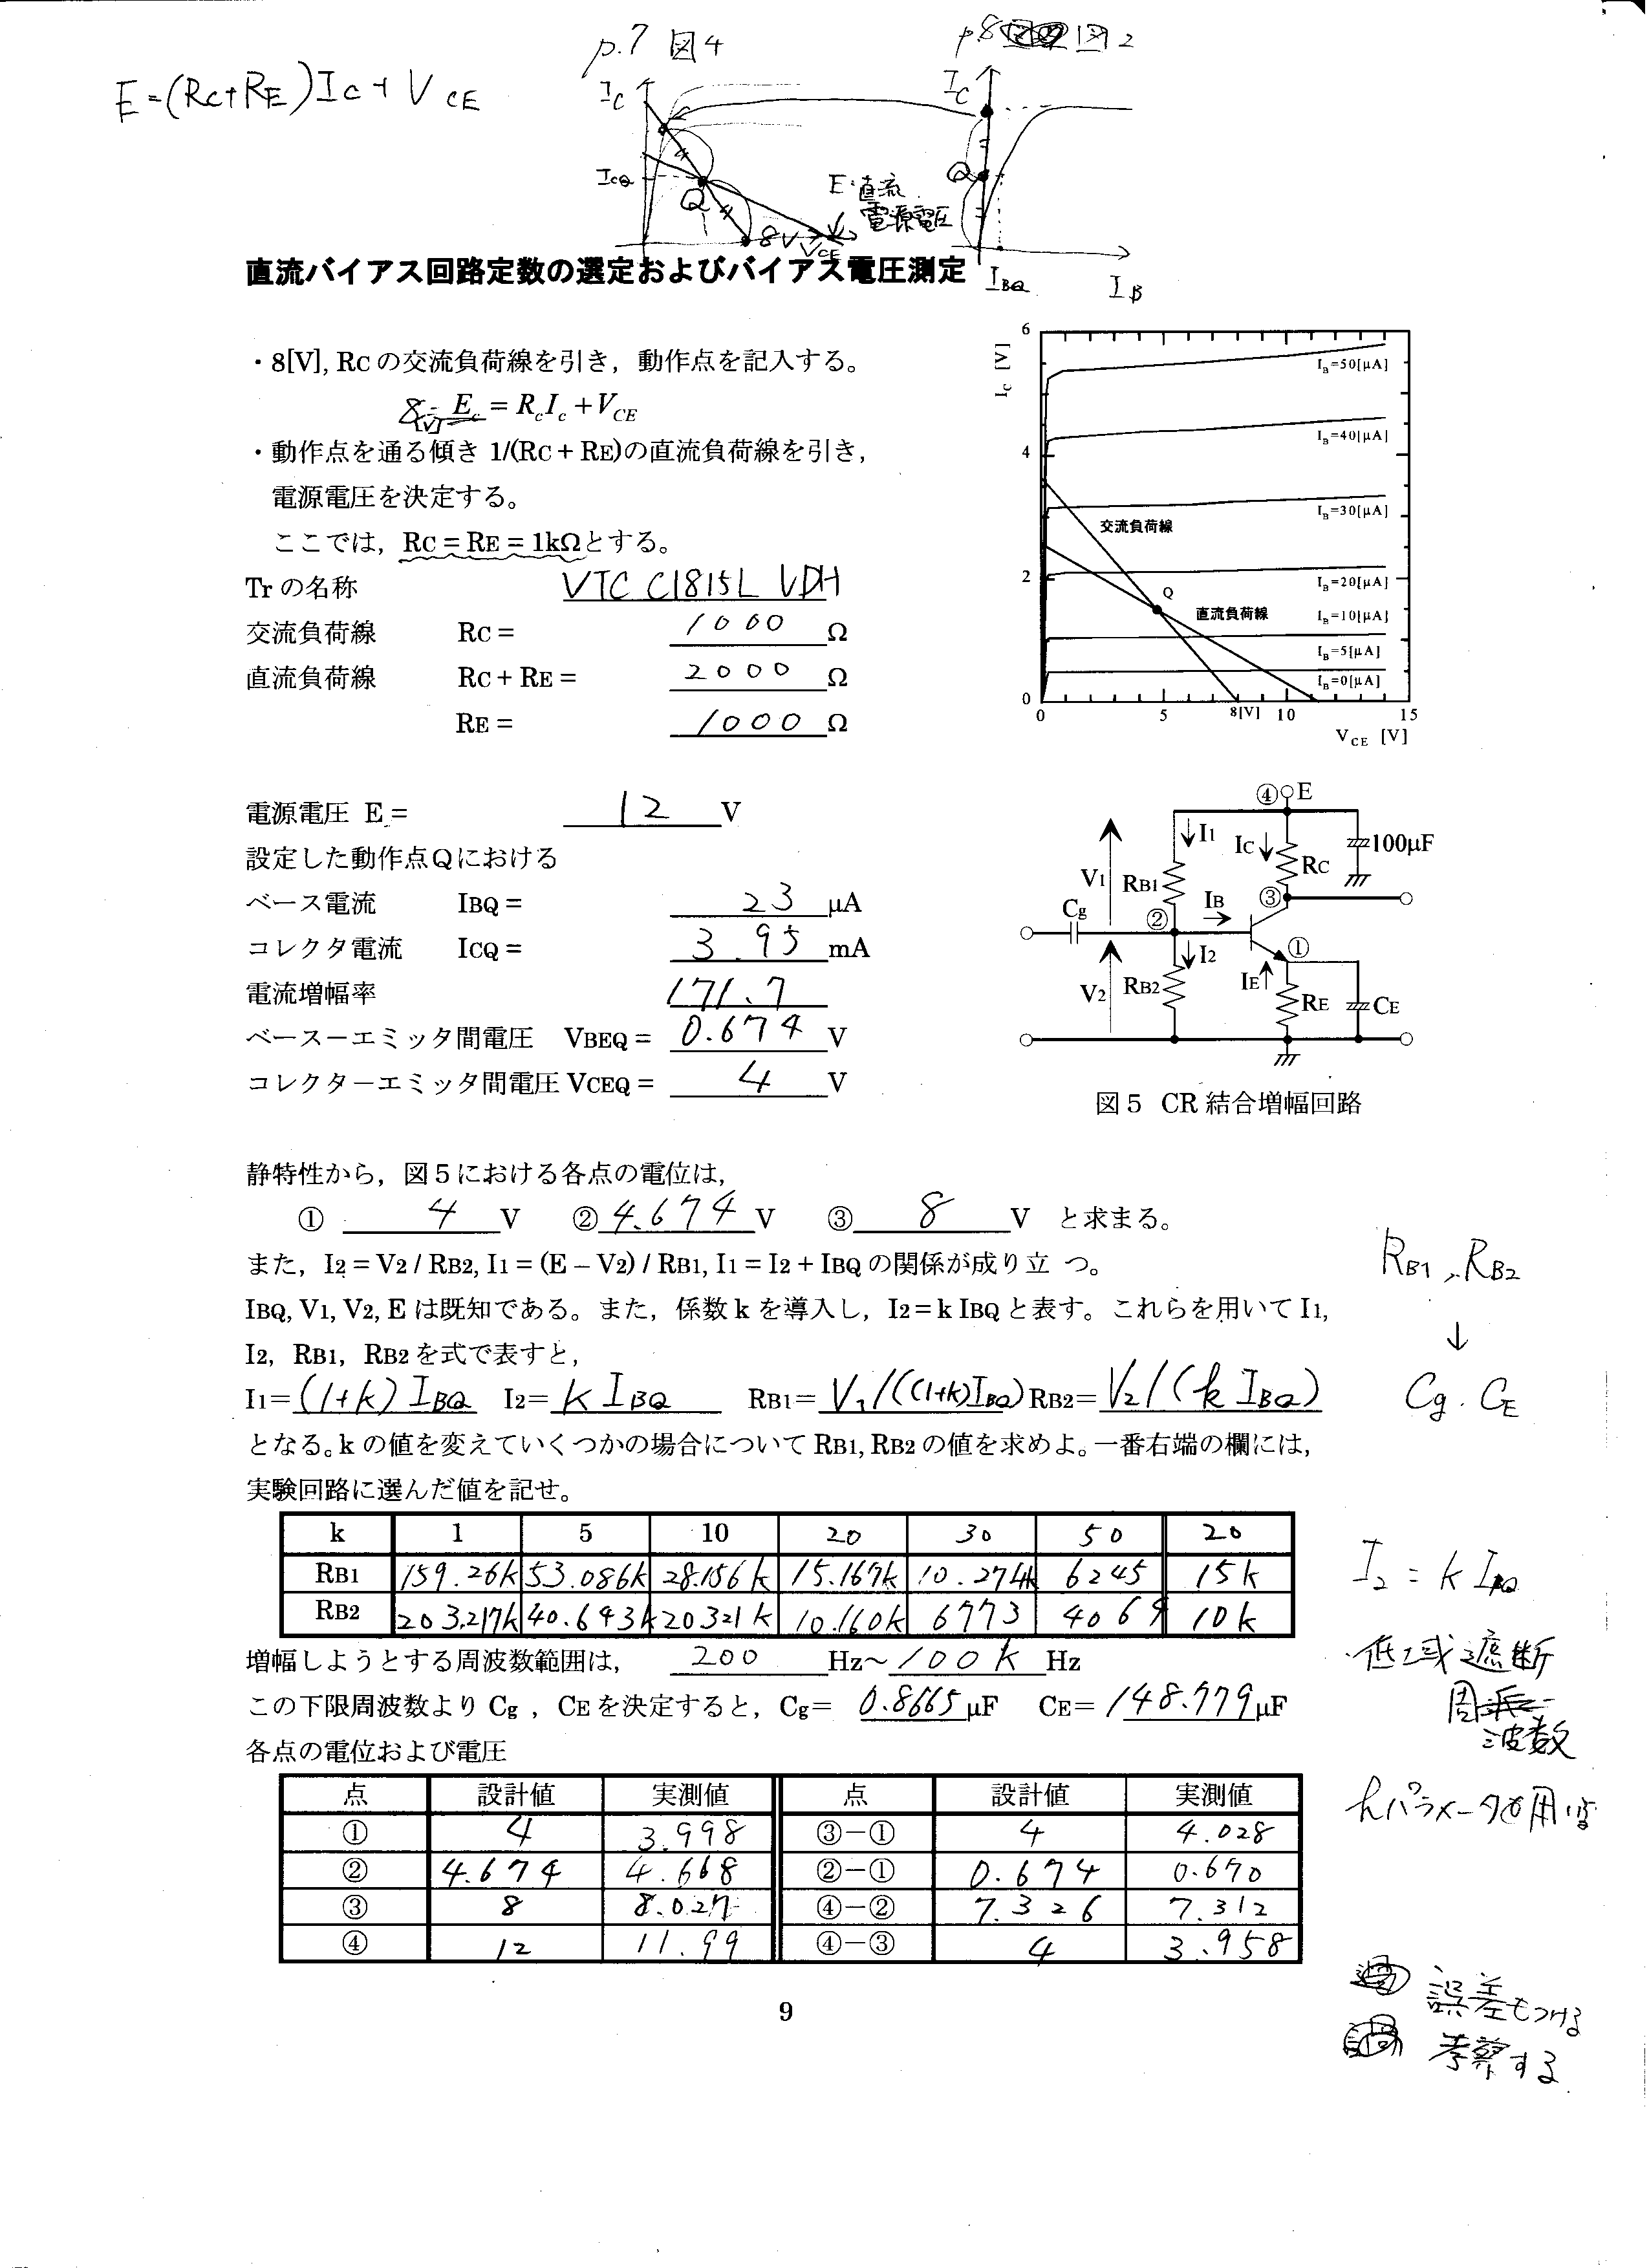 p.7 図4
p8 図2
E=(Rc+RE)Ic+VCE
Ic
Ic
IcQ
Q
Q
E:直流
電源電圧
8V
VCE
IBQ
IB
直流バイアス回路定数の選定およびバイアス電圧測定
・8[V], Rc の交流負荷線を引き，動作点を記入する。
8[V]= Ec = RcIc + VCE
・動作点を通る傾き 1/(RC + RE)の直流負荷線を引き，
電源電圧を決定する。
ここでは，RC = RE = 1kΩとする。
Tr の名称 VTC C1815L VDH
交流負荷線 RC = 1000 Ω
直流負荷線 RC + RE = 2000 Ω
RE = 1000 Ω
6
IC [V]
4
2
0
0 5 8[V] 10 15
VCE [V]
IB=50[μA]
IB=40[μA]
IB=30[μA]
IB=20[μA]
IB=10[μA]
IB=5[μA]
IB=0[μA]
交流負荷線
Q
直流負荷線
電源電圧 E = 12 V
設定した動作点Qにおける
ベース電流 IBQ = 23 μA
コレクタ電流 ICQ = 3.95 mA
電流増幅率 171.7
ベース－エミッタ間電圧 VBEQ = 0.674 V
コレクタ－エミッタ間電圧 VCEQ = 4 V
④ E
I1
IC
100μF
V1 RB1 RC
Cg
② IB ③
I2 ①
V2 RB2 IE RE CE
図5 CR 結合増幅回路
静特性から，図5における各点の電位は，
① 4 V ② 4.674 V ③ 8 V と求まる。
また，I2 = V2 / RB2, I1 = (E – V2) / RB1, I1 = I2 + IBQ の関係が成り立 つ。
IBQ, V1, V2, E は既知である。また，係数 k を導入し，I2 = k IBQ と表す。これらを用いて I1,
I2，RB1，RB2 を式で表すと，
I1= (1+k) IBQ I2= k IBQ RB1= V1/((1+k)IBQ) RB2= V2/(k IBQ)
となる。k の値を変えていくつかの場合について RB1, RB2 の値を求めよ。一番右端の欄には，
実験回路に選んだ値を記せ。
RB1, RB2
↓
Cg. CE
k 1 5 10 20 30 50 20
RB1 159.26k 53.086k 28.156k 15.167k 10.274k 6245 15k
RB2 203.217k 40.643k 20321k 10.160k 6773 4064 10k
増幅しようとする周波数範囲は， 200 Hz～ 100k Hz
この下限周波数より Cg，CE を決定すると，Cg= 0.8665 μF CE= 148.779 μF
I2 = k IBQ
・低域遮断
周波数
hパラメータを用いる
各点の電位および電圧
点 設計値 実測値 点 設計値 実測値
① 4 3.998 ③－① 4 4.028
② 4.674 4.668 ②－① 0.674 0.670
③ 8 8.027 ④－② 7.326 7.312
④ 12 11.99 ④－③ 4 3.958
誤差もつける
考察する
9